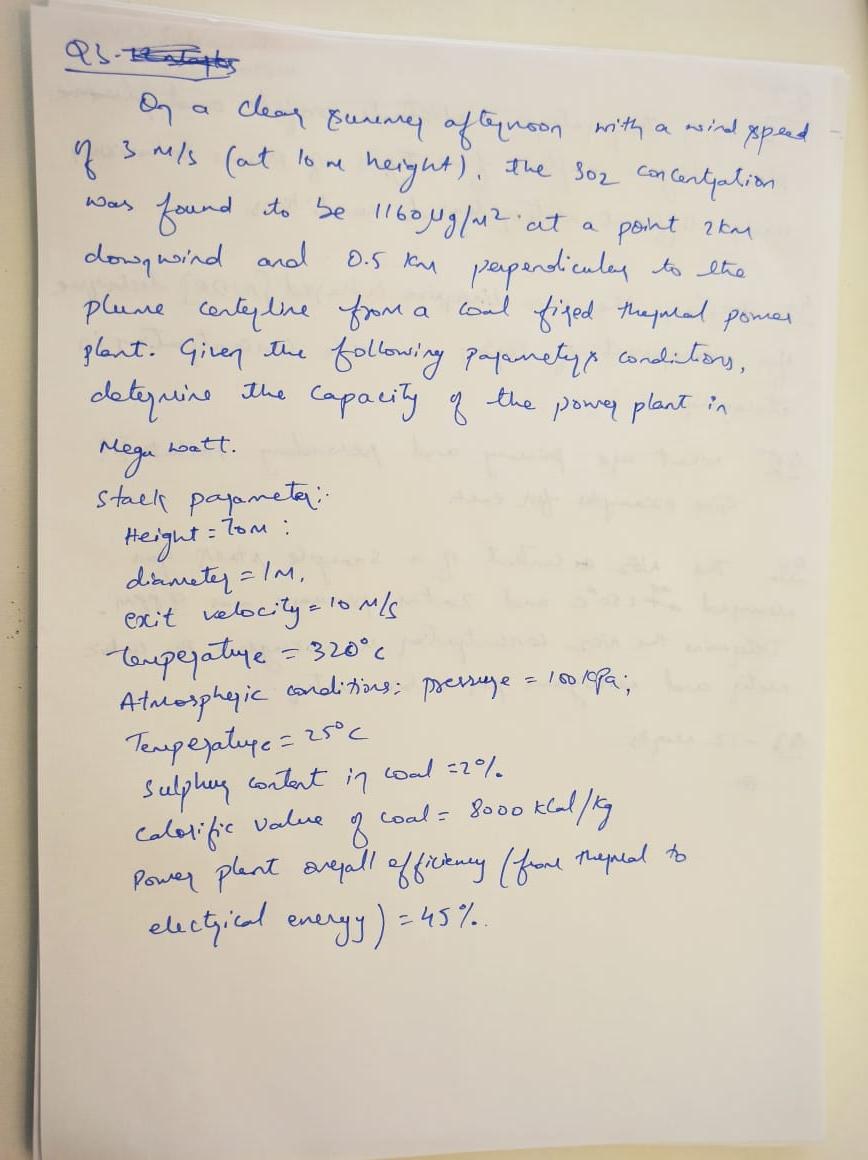 Q3.
On a clear summer afternoon with a wind speed
of 3 m/s (at 10 m height), the SO2 concentration
was found to be 1160 µg/m2. at a point 2km
downwind and 0.5 km perpendicular to the
plume centerline from a coal fired thermal power
plant. Given the following parameters conditions,
determine the capacity of the power plant in
Mega watt.
Stack parameter:-
Height = 70m :
diameter = 1M,
exit velocity = 10 m/s
temperature = 320°c
Atmospheric conditions: pressure = 100 kPa;
Temperature = 25°C
Sulphur content in coal = 2%.
Calorific value of coal = 8000 kCal/kg
Power plant overall efficiency (from thermal to
electrical energy) = 45%.